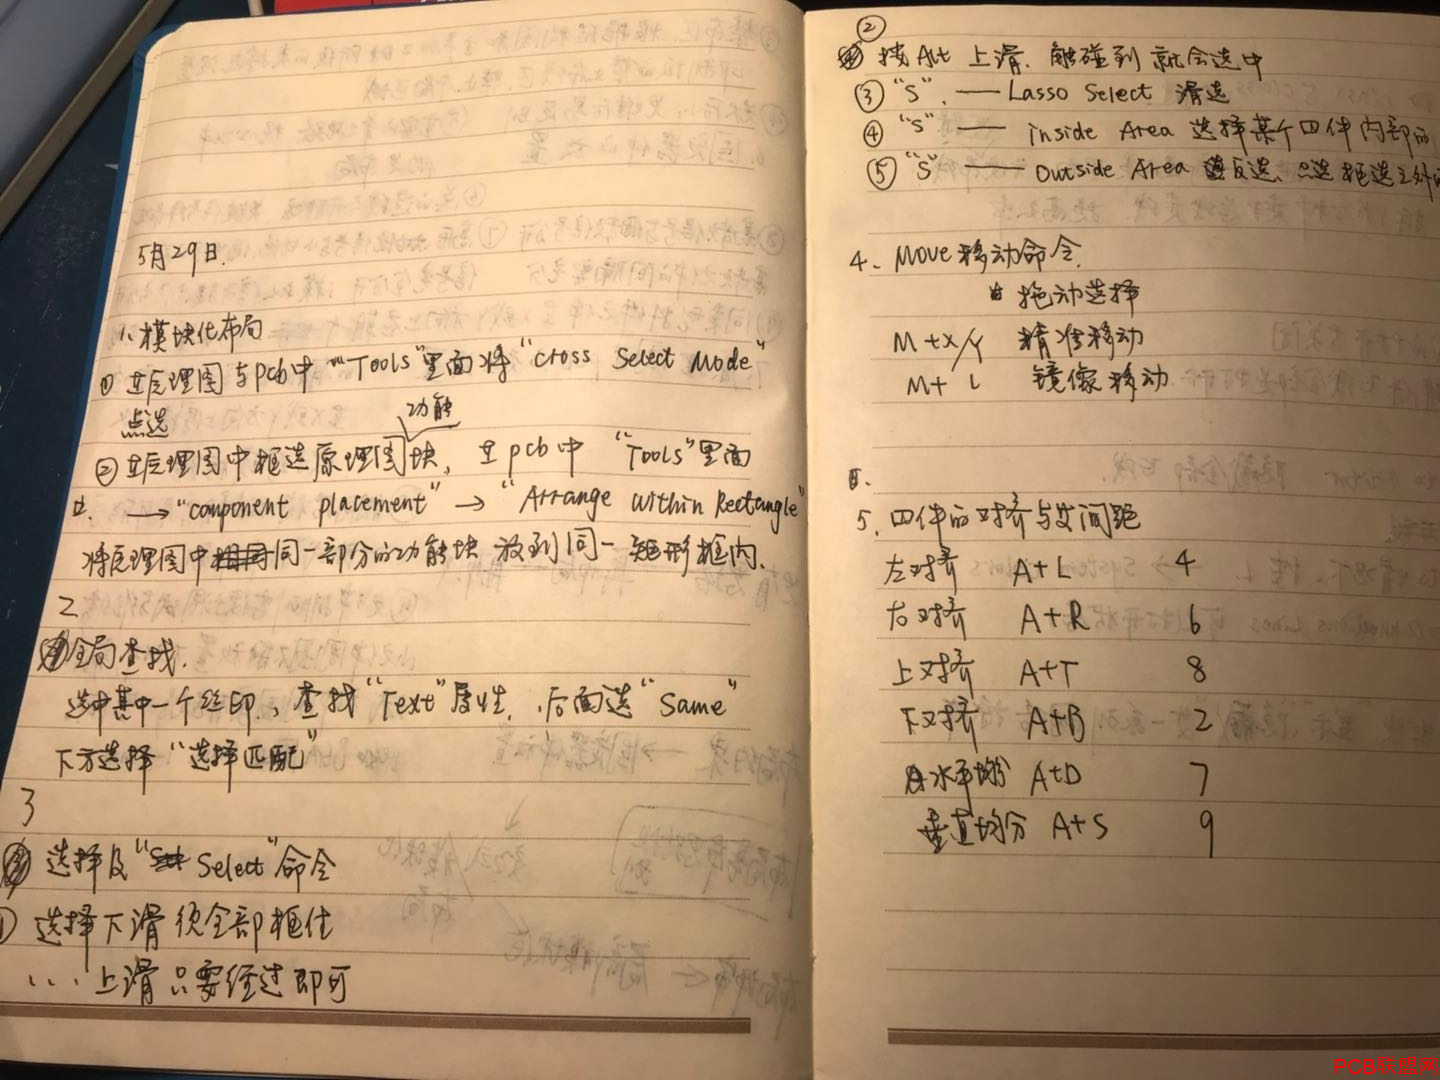 5月29日.
1、模块化布局
① 在原理图与pcb中 "Tools"里面将 "Cross Select Mode"
点选
功能
② 在原理图中框选原理图块, 在pcb中 "Tools"里面
→ "component placement" → "Arrange Within Rectangle"
将原理图中同一部分的功能块放到同一矩形框内.
2
全局查找.
选中其中一个丝印, 查找 "Text" 属性, 后面选 "Same"
下方选择 "选择匹配"
3
选择及 "Select" 命令
① 选择下滑须全部框住
上滑只要经过即可
②
按Alt 上滑. 触碰到就会选中
③ "S". — Lasso Select 滑选
④ "S" — inside Area 选择某个四件内部的
⑤ "S" — Outside Area 反选、点选框选之外的
4. Move移动命令.
拖动选择
M+X/Y 精准移动
M+L 镜像移动
5. 四件的对齐与等间距
左对齐 A+L 4
右对齐 A+R 6
上对齐 A+T 8
下对齐 A+B 2
水平均分 A+D 7
垂直均分 A+S 9
PCB联盟网